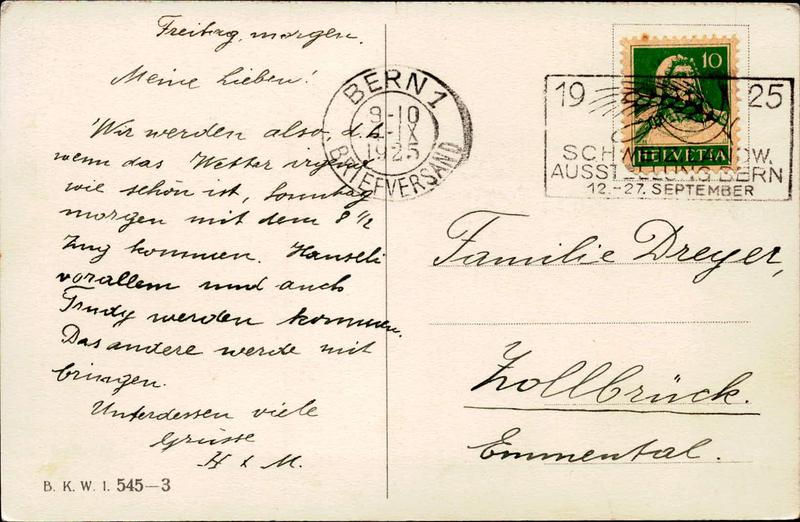 Freitag, morgen.
Meine Lieben!
Wir werden also, d.h.
wenn das Wetter irgend
wie schön ist, Sonntag
morgen mit dem 8 1/2
Zug kommen. Hanseli
vorallem und auch
Trudy werden kommen.
Das andere werde mit
bringen.
Unterdessen viele
Grüsse
H & M.
B. K. W. I. 545–3
BERN 1
9-10
IX
1925
BRIEFVERSAND
10
HELVETIA
19 25
SCHWEIZ. LANDW.
AUSSTELLUNG BERN
12.-27. SEPTEMBER
Familie Dreyer,
Zollbrück.
Emmental.